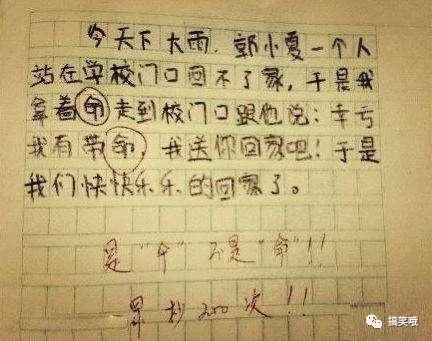 今天下大雨，郭小夏一个人
站在学校门口回不了家，于是我
拿着命走到校门口跟他说：幸亏
我有带命，我送你回家吧！于是
我们快快乐乐的回家了。
是"伞"不是"命"!!
罚抄200次!!
搞笑哦